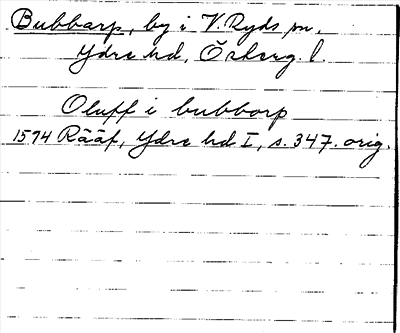 Bubbarp, by i V. Ryds sn,
Ydre hd, Österg. l.
Oluff i bubborp
1594 Rääf, Ydre hd I, s. 347. orig.